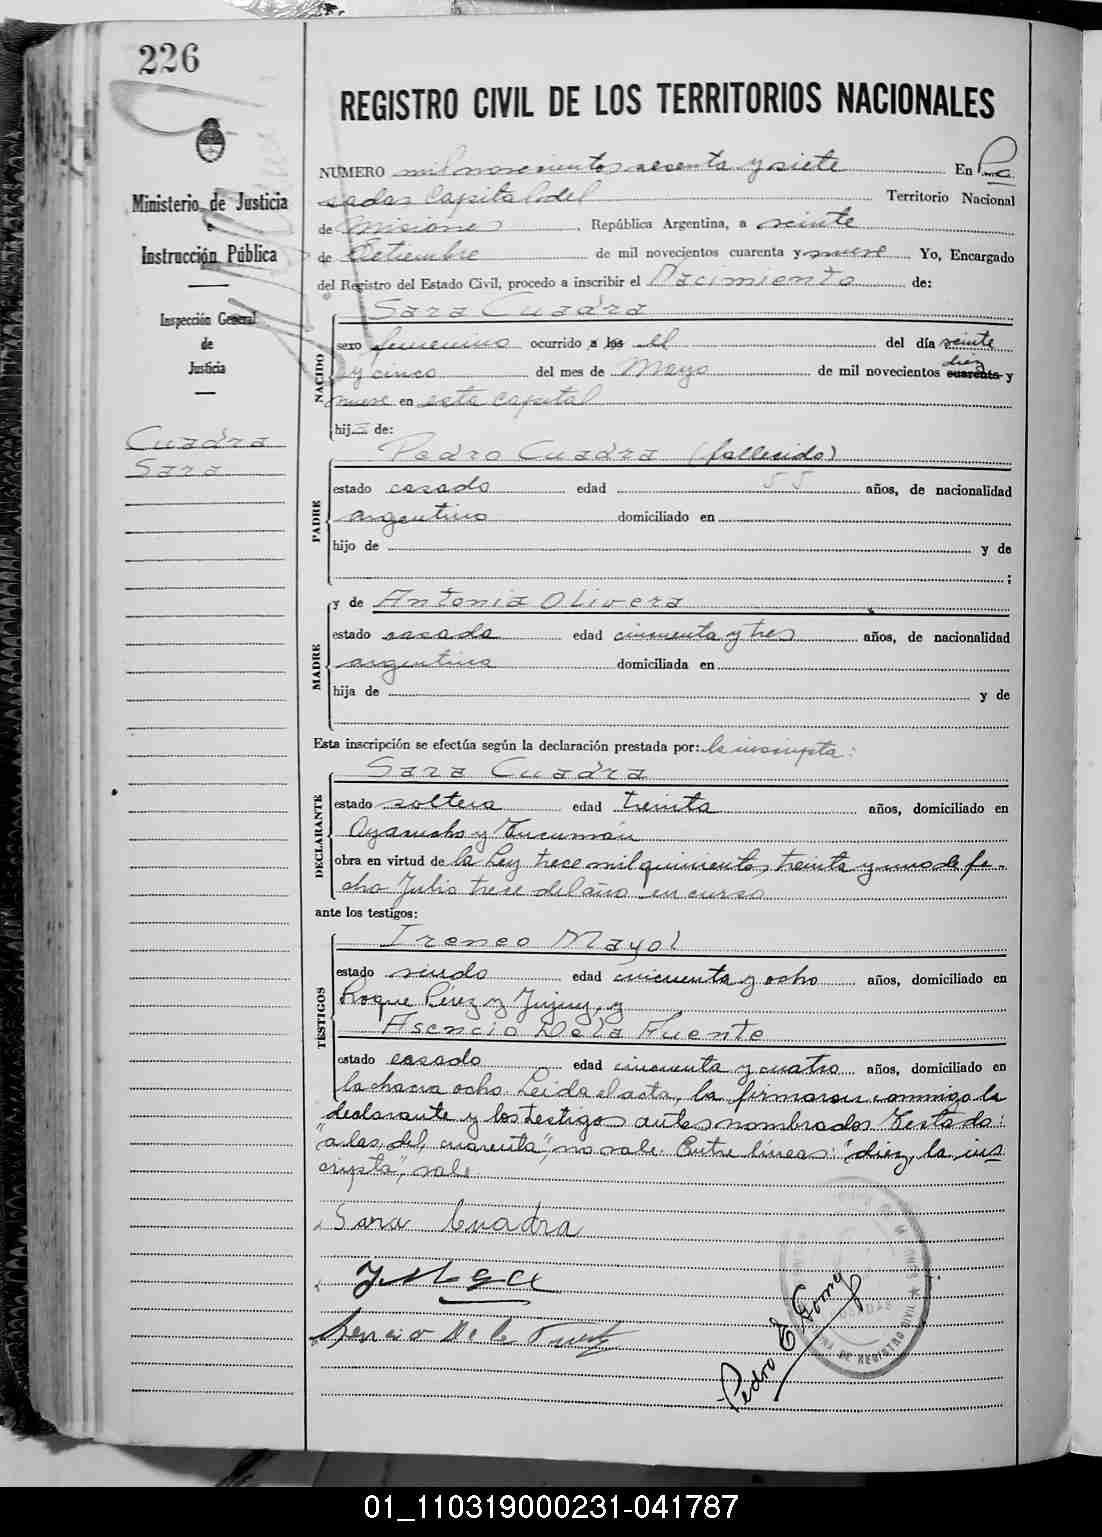 226
REGISTRO CIVIL DE LOS TERRITORIOS NACIONALES
Ministerio de Justicia
e
Instrucción Pública
Inspección General
de
Justicia
Cuadra
Sara
NUMERO mil novecientos sesenta y siete En Po
sadas Capital del Territorio Nacional
de Misiones, República Argentina, a veinte
de Setiembre de mil novecientos cuarenta y nueve Yo, Encargado
del Registro del Estado Civil, procedo a inscribir el Nacimiento de:
NACIDO
Sara Cuadra
sexo femenino ocurrido a las el del día veinte
diez
y cinco del mes de Mayo de mil novecientos cuarenta y
nueve en esta capital
hija de:
PADRE
Pedro Cuadra (fallecido)
estado casado edad 55 años, de nacionalidad
argentino domiciliado en
hijo de y de
;
MADRE
y de Antonia Olivera
estado casada edad cincuenta y tres años, de nacionalidad
argentina domiciliada en
hija de y de
Esta inscripción se efectúa según la declaración prestada por: la inscripta:
DECLARANTE
Sara Cuadra
estado soltera edad treinta años, domiciliado en
Ayacucho y Tucumán
obra en virtud de la Ley trece mil quinientos treinta y uno de fe-
cha Julio trece del año en curso
ante los testigos:
TESTIGOS
Ireneo Mayol
estado viudo edad cincuenta y ocho años, domiciliado en
Roque Pérez y Jujuy, y
Asencio De la Fuente
estado casado edad cincuenta y cuatro años, domiciliado en
la chacra ocho. Leida el acta, la firmaron conmigo la
declarante y los testigos antes nombrados. Testado:
"a las, del, cuarenta", no vale. Entre lineas: "diez, la ins
cripta", vale.
Sara Cuadra
Asencio De la Fuente
Pedro E Gomez
DE REGISTRO CIVIL
01_110319000231-041787